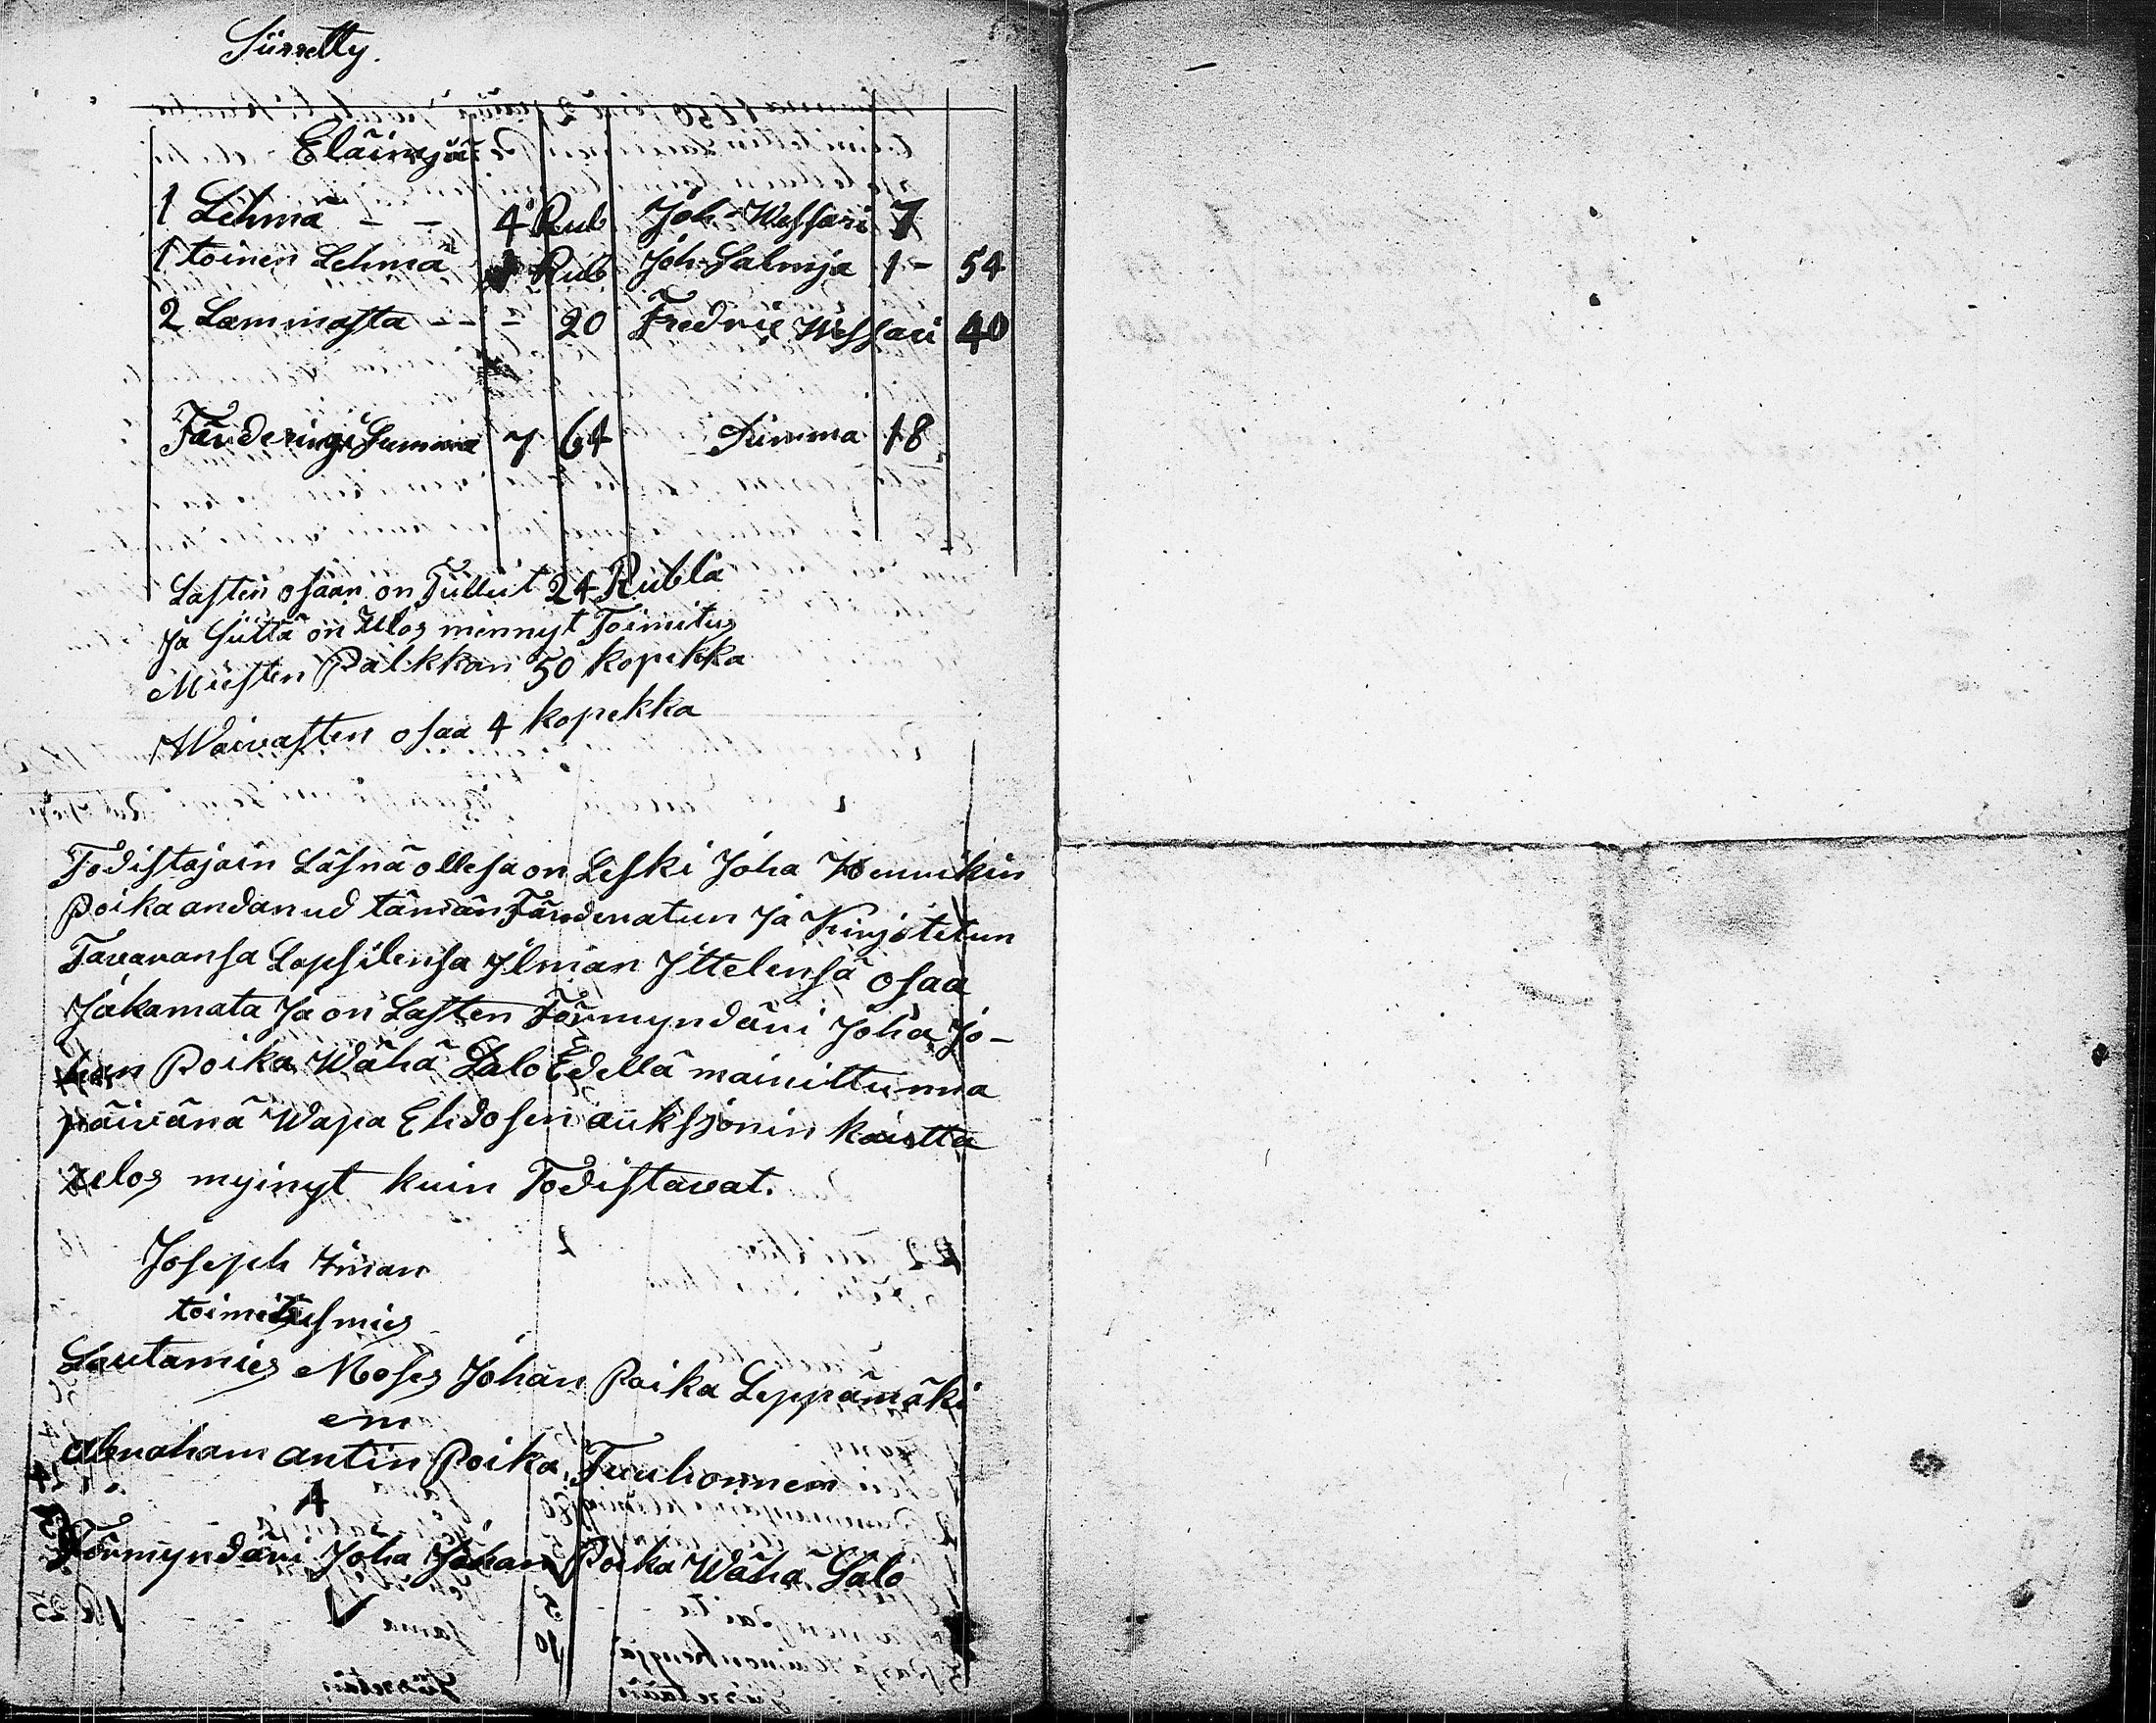 Siirretty.
Eläimjä
1 Lehmä - - 4 Rub Joh Wessari 7
1 toinen Lehmä Rub Joh Salmja 1 - 54
2 Lammasta - - - 20 Fredric Wessari 40
Färderingi Summa 7 64 Summa 18
Lasten osaan on Tullut 24 Rubla
Ja Siittä on Ulos mennyt Toimitus
Miesten Palkkan 50 kopekka
Waivasten osaa 4 kopekka
Todistajain Läsnä ollesa on Leski Joha Hennikin
Poika andanud tämän Färderatun Ja Kirjotetun
Tavaransa Lapsilensa Ilman Ittelensä osaa
Jakamata Ja on Lasten Förmyndäri Joha Jo-
han Poika Wähä Salo Edellä mainittunna
päivänä Wapa Ehdosen auksjonin kautta
ulos myinyt kuin Todistavat.
Joseph
toimitusmies
Lautamies Moses Johan Poika Leppämäki
em
Abraham antin Poika Tuuhonnem
A
Förmyndäri Joha Johan Poika Wähä Salo
V